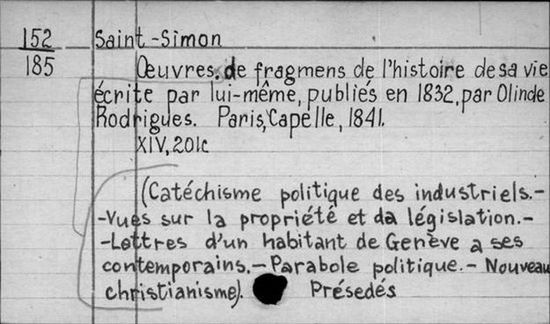 152 Saint-Simon
185 Œuvres. de fragmens de l'histoire de sa vie
écrite par lui-même, publiés en 1832, par Olinde
Rodrigues. Paris, Capelle, 1841.
XIV, 201c
(Catéchisme politique des industriels.-
-Vues sur la propriété et da législation.-
-Lettres d'un habitant de Genève a ses
contemporains.- Parabole politique.- Nouveau
christianisme). Présedés